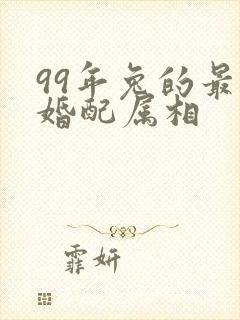 99年兔的最
婚配属相
霏妍